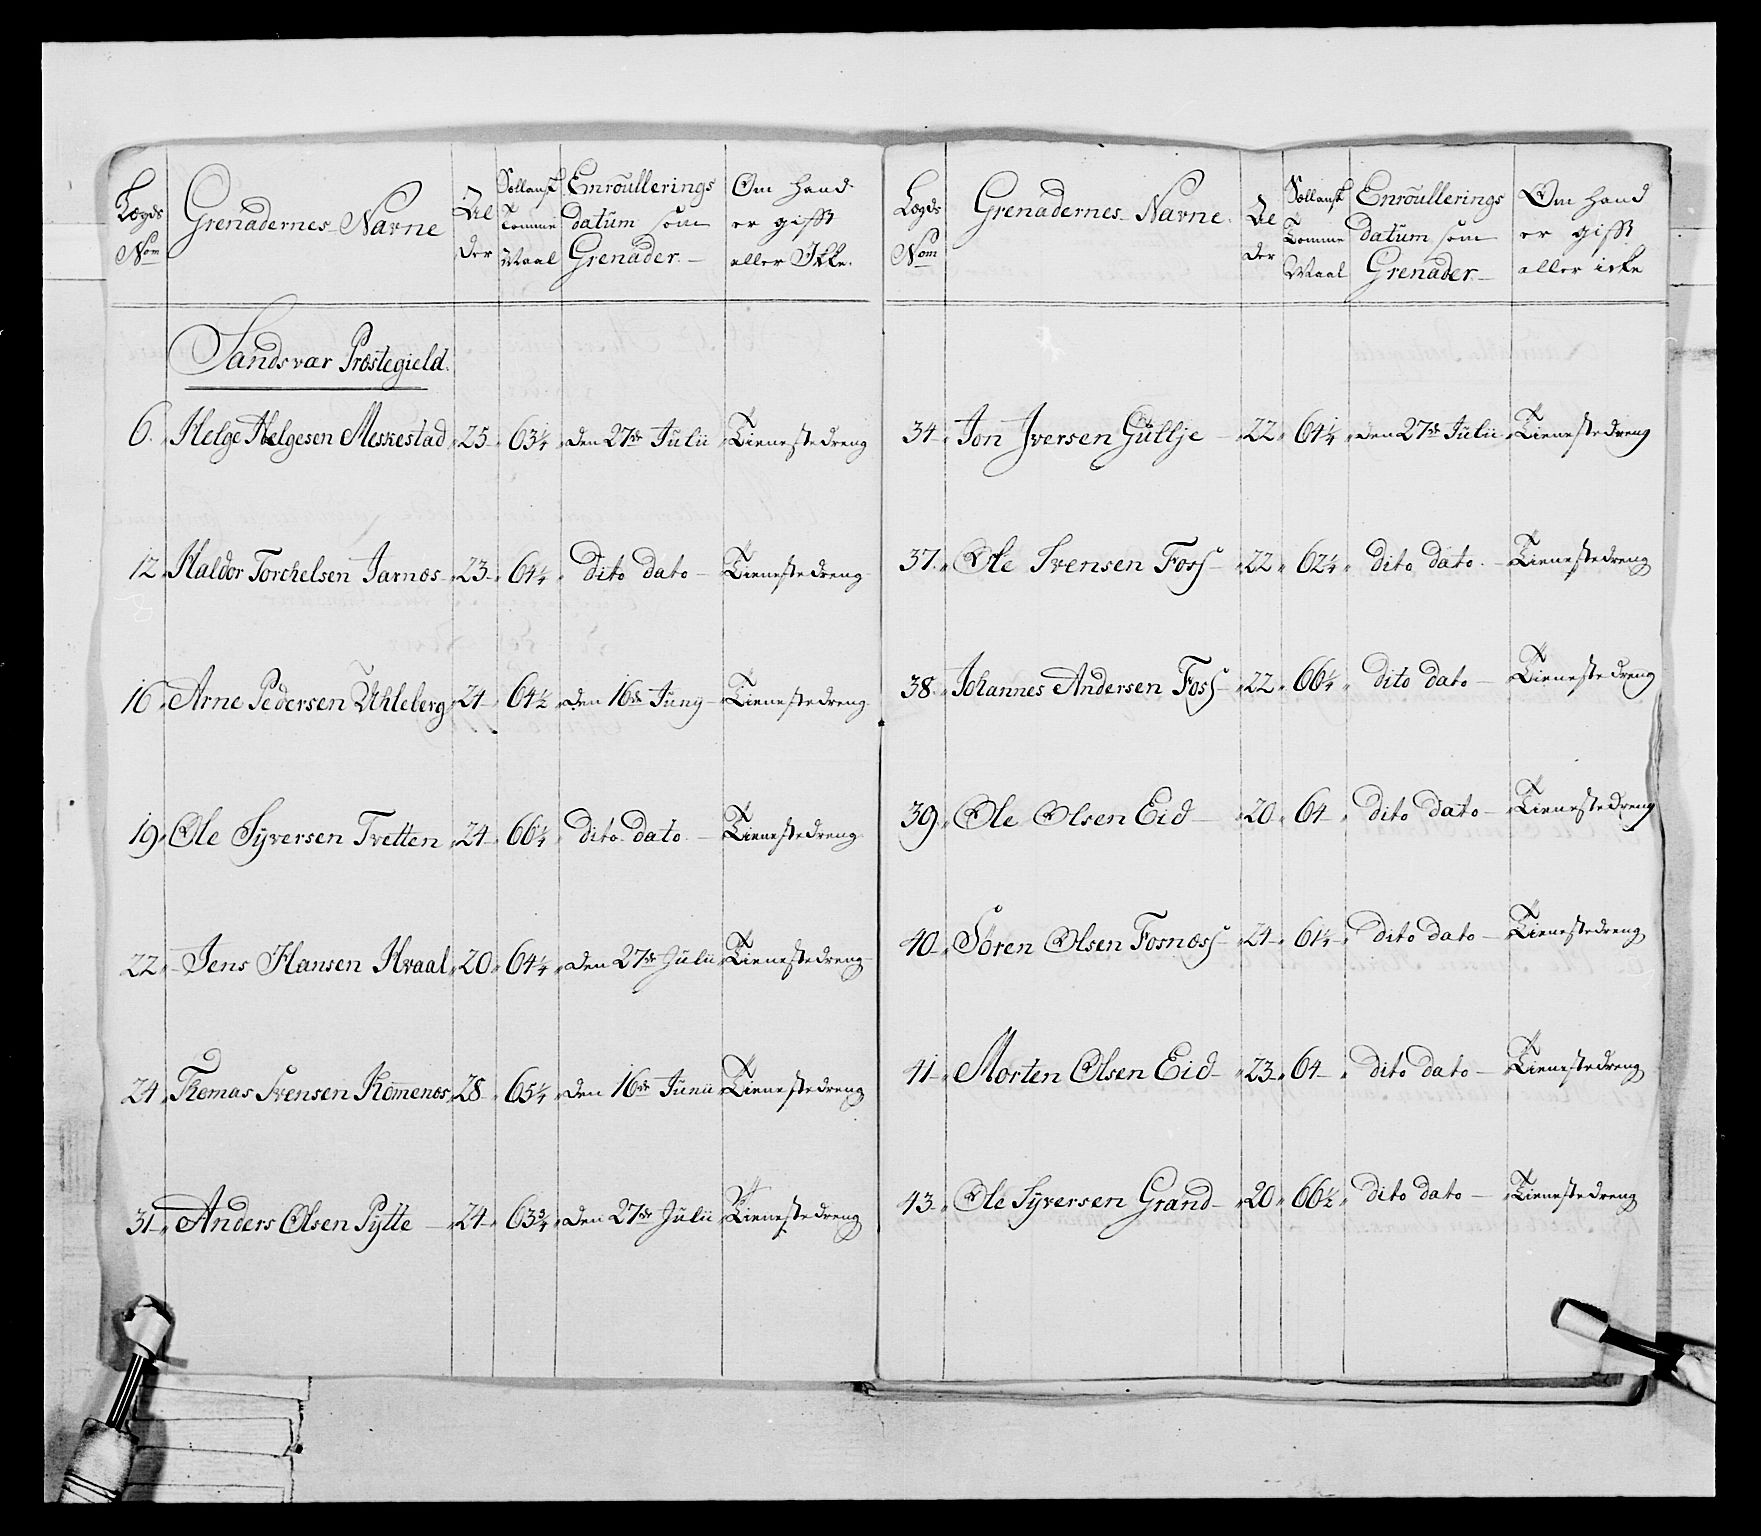 Lægds Nom Grenadernes Navne Alder Sællansk Tomme Maal Enroullerings datum som Grenader Om hand er gifft eller Ikke.
Sandsvær Præstegield.
6. Helge Helgesen Meskestad 25 63¼ den 27de Julii Tienestedreng
12 Haldor Torchelsen Jarnæs 23 64¼ dito dato Tienestedreng
16 Arne Pedersen Uhleberg 24 64½ den 16de Juny Tienestedreng
19 Ole Syversen Tvetten 24 66¼ dito dato Tienestedreng
22 Jens Hansen Hvaal 20 64¼ den 27de Julii Tienestedreng
24 Thomas Svensen Komenæs 28 65¼ den 16de Junii Tienestedreng
31 Anders Olsen Pytte 24 63¾ den 27de Julii Tienestedreng
Lægds Nom Grenadernes Navne. Alder Sællansk Tomme Maal Enroullerings datum som Grenader Om hand er gifft eller icke
34 Jon Iversen Gullje 22 64¼ den 27de Julii Tienestedreng
37. Ole Svensen Foss 22 62¼ dito dato Tienestedreng
38 Johannes Andersen Foss 22 66¼ dito dato Tienestedreng
39 Ole Olsen Eid 20 64 dito dato Tienestedreng
40 Sören Olsen Fosnæss 24 61¼ dito dato Tienestedreng
41 Morten Olsen Eid 23 64 dito dato Tienestedreng
43 Ole Syversen Grand 20 66½ dito dato Tienestedreng